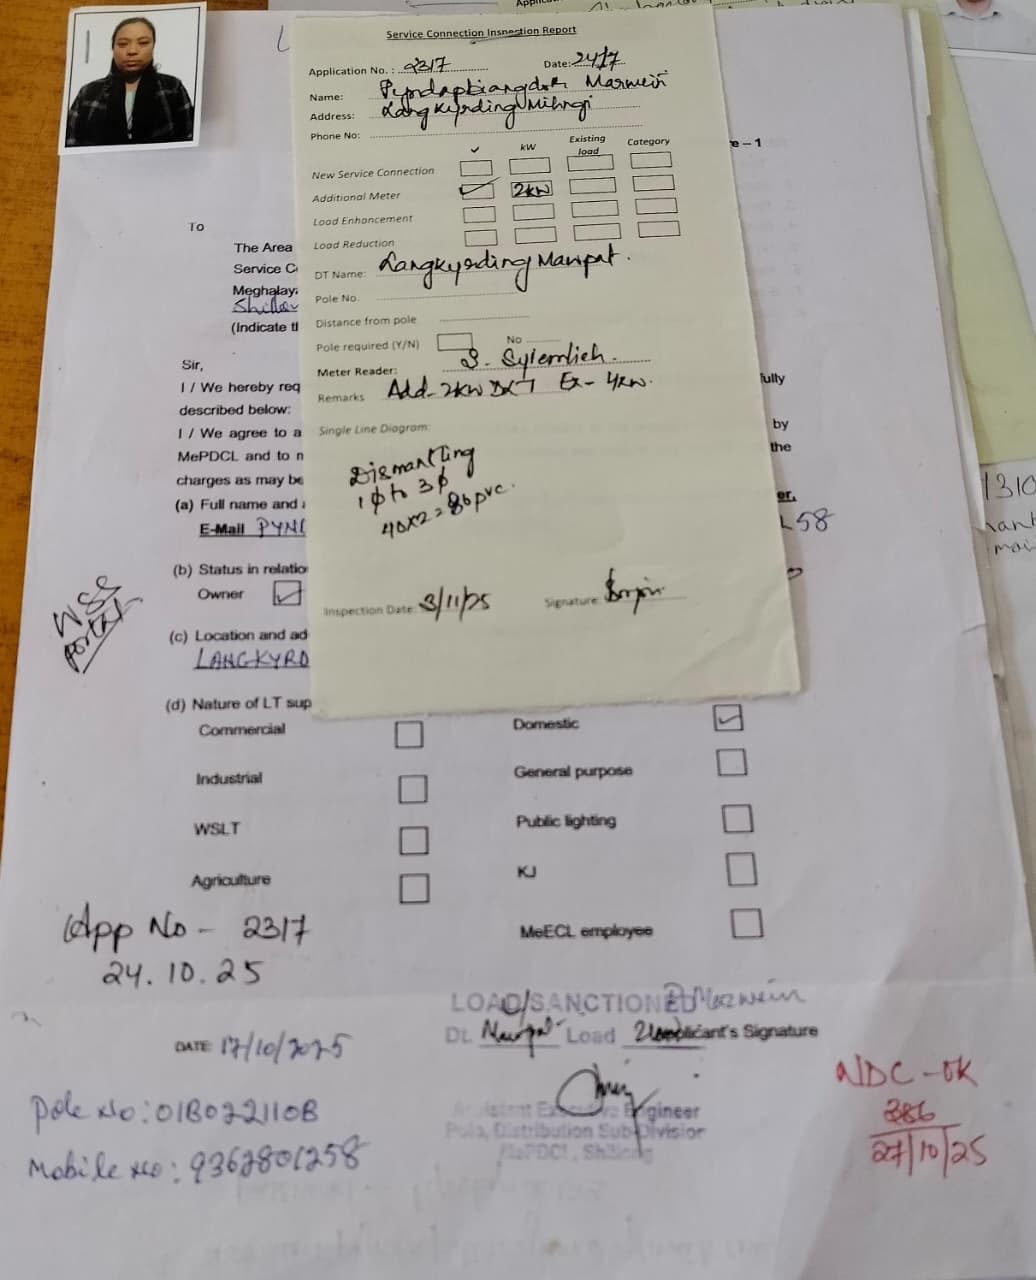 Service Connection Inspection Report
Application No. : 2317 Date: 24/7
Name: Pyndapbiangdoh Marwein
Address: Langkyrding Mihngi
Phone No:
✓ kW Existing load Category
New Service Connection
Additional Meter ✓ 2kW
Load Enhancement
Load Reduction
DT Name: Langkyrding Mawpat.
Pole No.
Distance from pole
Pole required (Y/N) No
Meter Reader: S. Syiemlieh.
Remarks Add- 2kW DLT Ex- 4kw.
Single Line Diagram:
Dismantling
1ϕ to 3ϕ
40x2 = 80 pvc.
Inspection Date: 3/11/25 Signature:
e – 1
To
The Area
Service C
Meghalaya
Shillon
(Indicate th
Sir,
I / We hereby req fully
described below:
I / We agree to a by
MePDCL and to n the
charges as may be
(a) Full name and er.
E-Mail PYND 58
(b) Status in relatio
Owner ✓
WSS
portal
(c) Location and ad
LANGKYRD
(d) Nature of LT sup
Commercial Domestic ✓
Industrial General purpose
WSLT Public lighting
Agriculture KJ
MeECL employee
App No - 2317
24.10.25
LOAD/SANCTIONED PMarwein
Dt. Load Applicant's Signature
DATE: 17/10/2025
Assistant Executive Engineer
Pole No: 01B022110B
Distribution Sub Division
MePDCL, Shillong
Mobile No: 9362801258
NDC - OK
386
27/10/25
1310